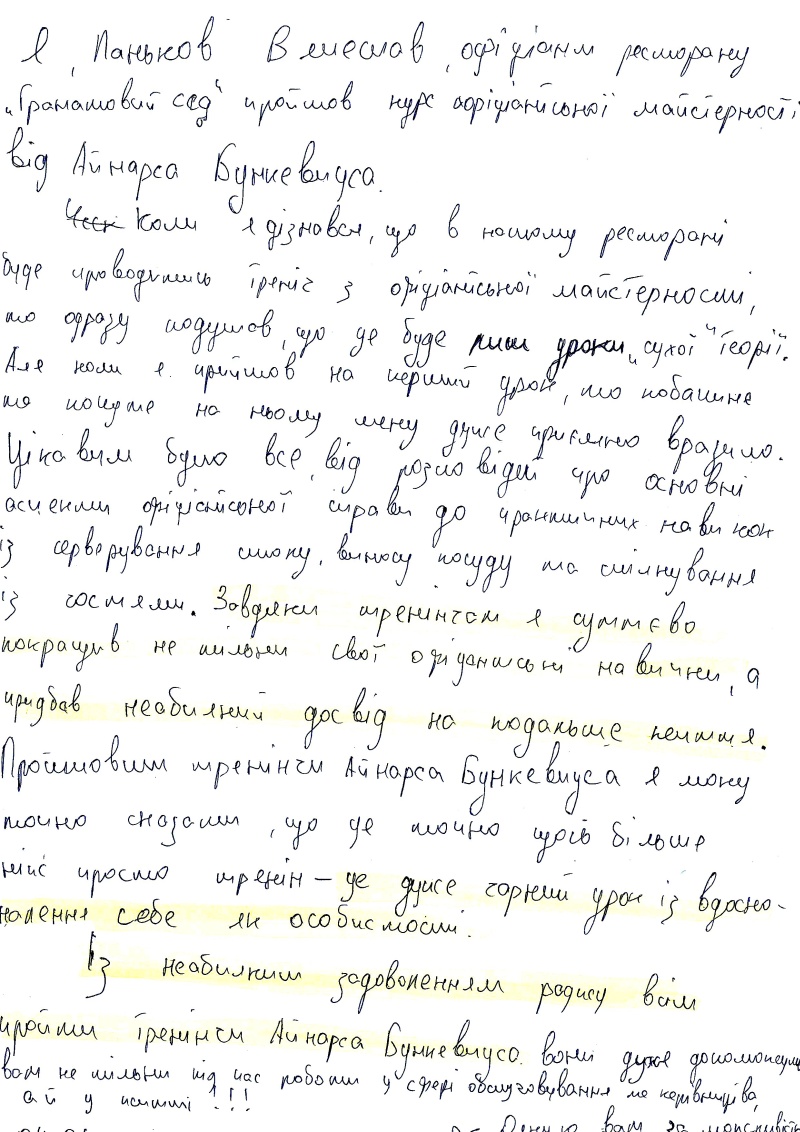 Я, Паньков Вячеслав, офіціант ресторану
„Гранатовий сад" пройшов курс офіціантської майстерності
від Айнарса Бункевичуса.
Коли я дізнався, що в нашому ресторані
буде проводитись тренінг з офіціантської майстерності,
то одразу подумав, що це буде лиш уроки „сухої" теорії.
Але коли я прийшов на перший урок, то побачене
та почуте на ньому мену дуже приємно вразило.
Цікавим було все від розповідей про основні
аспекти офіціантської справи до практичних навичок
із серверування столу, виносу посуду та спілкування
із гостями. Завдяки тренінгам я суттєво
покращив не тільки свої офіціантські навички, а
придбав неабиякий досвід на подальше життя.
Пройшовши тренінги Айнарса Бункевичуса я можу
точно сказати, що це точно щось більше
ніж просто тренін – це дуже гарний урок із вдоско-
налення себе як особистості.
Із неабияким задоволенням раджу всім
пройти тренінги Айнарса Бункевичуса. вони дуже допоможуть
вам не тільки під час роботи у сфері обслуговування та керівництва,
а й у житті !!!
Дякую вам за можливість